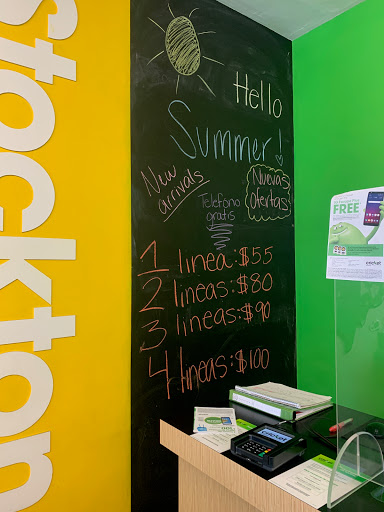 Stockton
Hello
Summer!
New
arrivals
Telefono
gratis
Nuevas
ofertas
1 linea:$55
2 lineas:$80
3 lineas:$90
4 lineas:$100
FREE
cricket